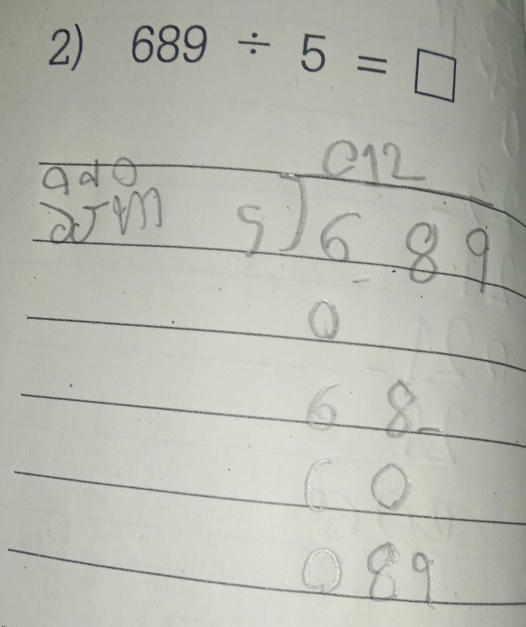 2) 689 ÷ 5 = □
012
5) 6 8 9
-
0
6 8 -
6 0
0 8 9